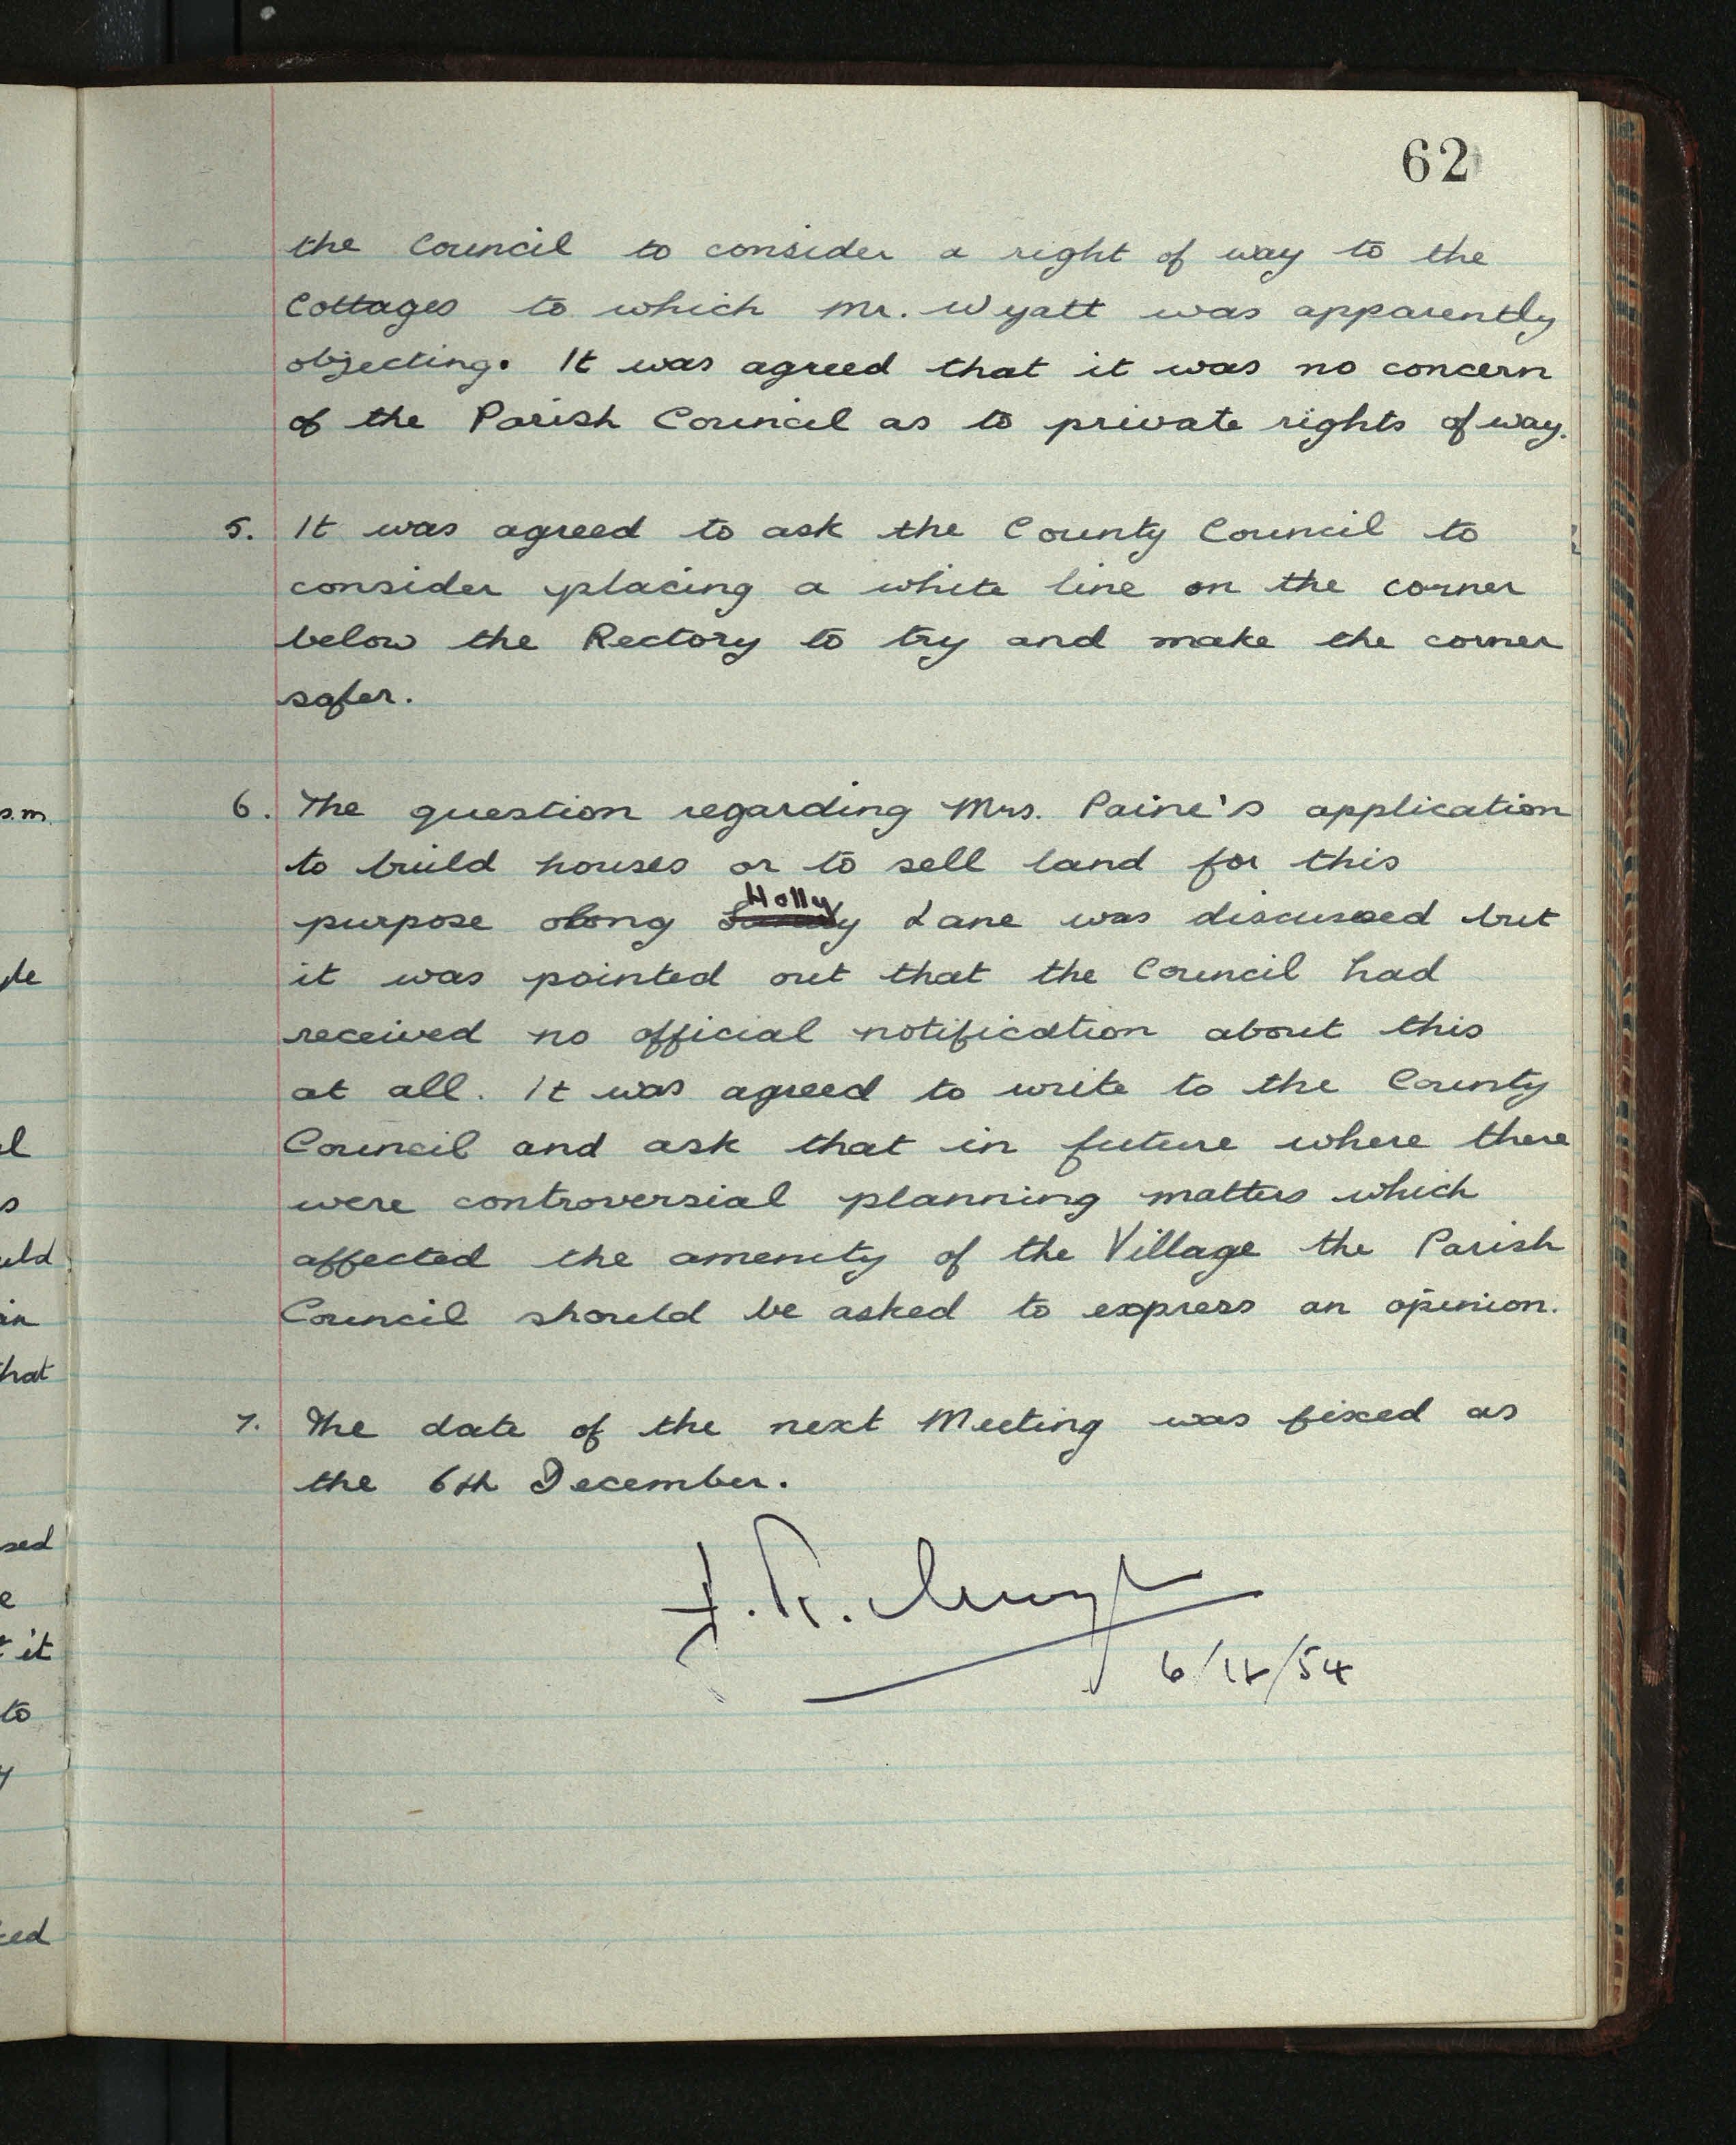 62
the Council to consider a right of way to the
Cottages to which Mr. Wyatt was apparently
objecting. It was agreed that it was no concern
of the Parish Council as to private rights of way.
5. It was agreed to ask the County Council to
consider placing a white line on the corner
below the Rectory to try and make the corner
safer.
6. The question regarding Mrs. Paine's application
to build houses or to sell land for this
purpose along Holly Lane was discussed but
it was pointed out that the Council had
received no official notification about this
at all. It was agreed to write to the County
Council and ask that in future where there
were controversial planning matters which
affected the amenity of the Village the Parish
Council should be asked to express an opinion.
7. The date of the next Meeting was fixed as
the 6th December.
6/12/54